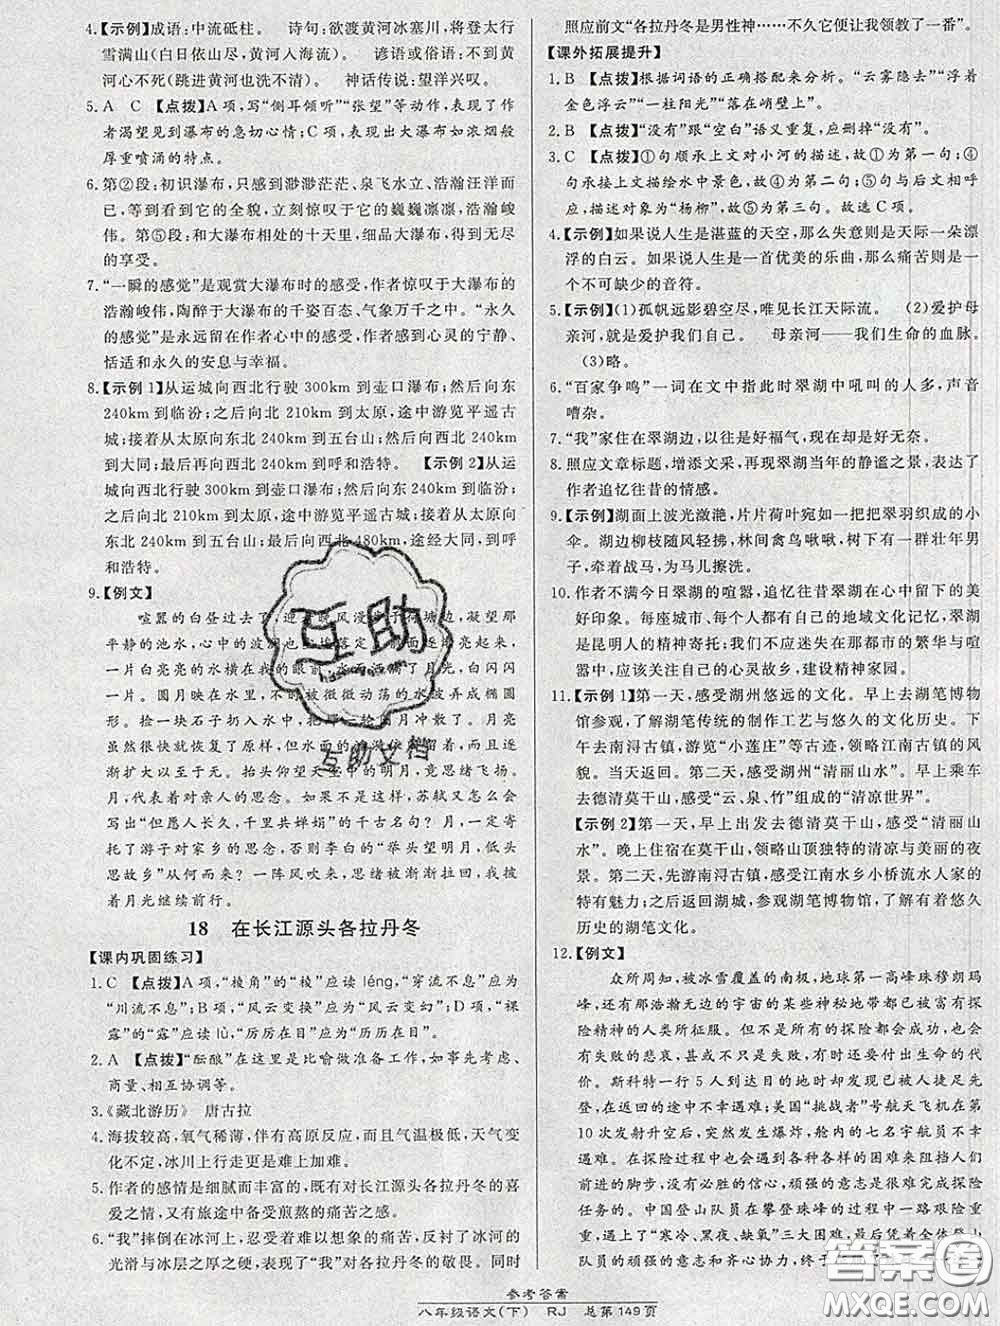 4.【示例】成语：中流砥柱。　诗句：欲渡黄河冰塞川，将登太行
雪满山(白日依山尽，黄河入海流)。　谚语或俗语：不到黄
河心不死(跳进黄河也洗不清)。　神话传说：望洋兴叹。
5. A　C　【点拨】A项，写“侧耳倾听”“张望”等动作，表现了作
者渴望见到瀑布的急切心情；C项，表现出大瀑布如浓烟般
厚重喷涌的特点。
6. 第②段：初识瀑布，只感到渺渺茫茫、泉飞水立、浩瀚汪洋而
已，等到看到它的全貌，立刻惊叹于它的巍巍凛凛，浩瀚峻
伟。第⑤段：和大瀑布相处的十天里，细品大瀑布，得到无尽
的享受。
7.“一瞬的感觉”是观赏大瀑布时的感受，作者惊叹于大瀑布的
浩瀚峻伟，陶醉于大瀑布的千姿百态、气象万千之中。“永久
的感觉”是永远留在作者心中的感受，作者感到心灵的宁静、
恬适和永久的安息与幸福。
8.【示例 1】从运城向西北行驶 300km 到壶口瀑布；然后向东
240km 到临汾；之后向北 210km 到太原，途中游览平遥古
城；接着从太原向东北 240km 到五台山；然后向西北 240km
到大同；最后再向西北 240km 到呼和浩特。　【示例 2】从运
城向西北行驶 300km 到壶口瀑布；然后向东 240km 到临
汾；之后向北 210km 到太原，途中游览平遥古城；接着向东
北 240km 到五台山；最后向西北 480km，途经大同，到呼
和浩特。
9.【例文】
喧嚣的白昼过去了，迎着晚风漫
平静的池水，心中的波
一片白亮亮的水横在我的眼前
一片。圆月映在水里，不时被微微动荡的水波弄成椭圆
形。捡一块石子扔入水中，把
虽然碎了，却很快又复合了
逐渐扩大以至于无。抬头仰望天空中的明月，竟思绪飞扬。
月，代表着对亲人的思念。如果不是，苏轼又怎么会
写出“但愿人长久，千里共婵娟”的千古名句？月，一定寄
托了游子对家乡的思念，否则李白的“举头望明月，低头
思故乡”从何而来？一阵风吹来，思绪被渐渐拉回，我
披着月光继续前行。
18　在长江源头各拉丹冬
【课内巩固练习】
1. C　【点拨】A项，“棱角”的“棱”应读 léng，“穿流不息”应为
“川流不息”；B项，“风云变换”应为“风云变幻”；D项，“裸
露”的“露”应读 lù，“厉厉在目”应为“历历在目”。
2. A　【点拨】“酝酿”在这里是比喻做准备工作，如事先考虑、
商量、相互协调等。
3.《藏北游历》　唐古拉
4. 海拔较高，氧气稀薄，伴有高原反应，而且气温极低，天气变
化不定，冰川上行走更是难上加难。
5. 作者的感情是细腻而丰富的，既有对长江源头各拉丹冬的喜
爱之情，又有旅途中备受煎熬的痛苦之感。
6.“我”摔倒在冰河上，忍受着难以想象的痛苦，反衬了冰河的
光滑与冰层之厚之硬，表现了“我”对各拉丹冬的敬畏。同时
照应前文“各拉丹冬是男性神……不久它便让我领教了一番”。
【课外拓展提升】
1. B　【点拨】根据词语的正确搭配来分析。“云雾隐去”“浮着
金色浮云”“一柱阳光”“落在峭壁上”。
2. B　【点拨】“没有”跟“空白”语义重复，应删掉“没有”。
3. C　【点拨】①句顺承上文对小河的描述，故①为第一句；④
句依然描绘水中景色，故④为第二句；⑤句与后文相呼
应，描述对象为“杨柳”，故⑤为第三句。故选 C 项。
4.【示例】如果说人生是湛蓝的天空，那么失意则是天际一朵漂
浮的白云。如果说人生是一首优美的乐曲，那么痛苦则是一
个不可缺少的音符。
5.【示例】(1)孤帆远影碧空尽，唯见长江天际流。　(2)爱护母
亲河，就是爱护我们自己。　母亲河——我们生命的血脉。
(3)略。
6.“百家争鸣”一词在文中指此时翠湖中吼叫的人多，声音
嘈杂。
7.“我”家住在翠湖边，以往是好福气，而现在却很无奈。
8. 照应文章标题，增添文采，再现翠湖当年的静谧之景，表达了
作者追忆往昔的情感。
9.【示例】湖面上波光潋滟，片片荷叶宛如一把把翠羽织成的小
伞。湖边柳枝随风轻拂，林间禽鸟啾啾，树下有一群壮年男
子，牵着战马，为马儿擦洗。
10. 作者不满今日翠湖的喧嚣，追忆往昔翠湖在心中留下的美
好印象。每座城市、每个人都有自己的地域文化记忆，翠湖
是昆明人的精神寄托；我们不应迷失在那都市的繁华与喧
嚣中，应该关注自己的心灵故乡，建设精神家园。
11.【示例 1】第一天，感受湖州悠远的文化。早上去湖笔博物
馆参观，了解湖笔传统的制作工艺与悠久的文化历史。下
午去南浔古镇，游览“小莲庄”等古迹，领略江南古镇的风
貌。当天返回。第二天，感受湖州“清丽山水”。早上乘车
去德清莫干山，感受“云、泉、竹”组成的“清凉世界”。
【示例 2】第一天，早上出发去德清莫干山，感受“清丽山
水”。晚上住宿在莫干山，领略山顶独特的清凉与美丽的夜
景。第二天，先游南浔古镇，感受江南水乡小桥流水人家的
特有魅力；之后返回湖城，参观湖笔博物馆，了解有着悠久
历史的湖笔文化。
12.【例文】
众所周知，被冰雪覆盖的南极，地球第一高峰珠穆朗玛
峰，还有那浩瀚无边的宇宙的某些神秘地带都已被具有探
险精神的人类所征服。但是，不是所有的探险都会成功，也会
有失败的悲哀，甚至不只是失败，有时还要付出生命的代
价。斯科特一行 5 人到达目的地时却发现被别人捷足先
登，在返回的途中不幸遇难；美国“挑战者”号航天飞机在第
10 次发射升空后，突然发生爆炸，舱内的七名宇航员不幸
遇难。在探险过程中也有一些人成功了，探险需要信心，
没有必胜的信心，顽强的意志是很难完成探险
任务的。中国登山队员在攀登珠峰的过程中一路艰险重
重，遇上了“寒冷、黑夜、缺氧”三大困难，但是，全体登山队
员以顽强的意志和齐心协力，终于
互助
互助文档
答案圈
MXQE.COM
参考答案
八年级语文(下)　RJ　总第 149 页